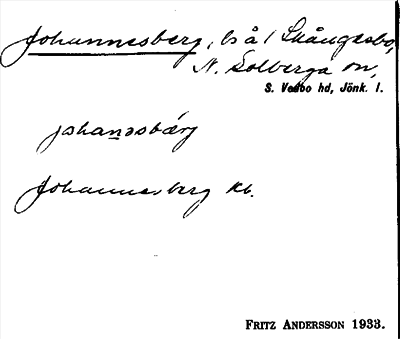 Johannesberg, ls å / Skångsbo,
N. Solberga sn,
S. Vedbo hd, Jönk. l.
johanəsbærj
Johannesberg kb.
FRITZ ANDERSSON 1933.